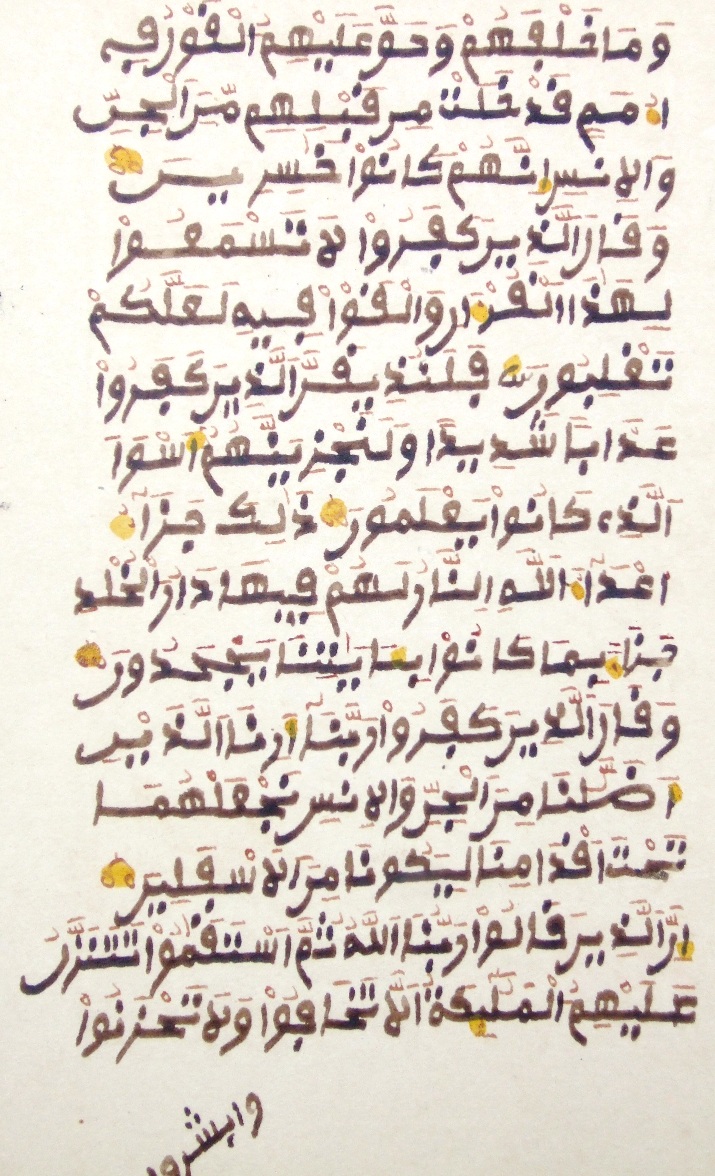 وما خلفهم وحق عليهم القول في
امم قد خلت من قبلهم من الجن
والانس انهم كانوا خسرين
وقال الذين كفروا لا تسمعوا
لهذا القرءان والغوا فيه لعلكم
تغلبون فلنذيقن الذين كفروا
عذابا شديدا ولنجزينهم اسوا
الذي كانوا يعملون ذلك جزاء
اعداء الله النار لهم فيها دار الخلد
جزاء بما كانوا بايتنا يجحدون
وقال الذين كفروا ربنا ارنا الذين
اضلنا من الجن والانس نجعلهما
تحت اقدامنا ليكونا من الاسفلين
ان الذين قالوا ربنا الله ثم استقموا تتنزل
عليهم الملئكة الا تخافوا ولا تحزنوا
وابشروا